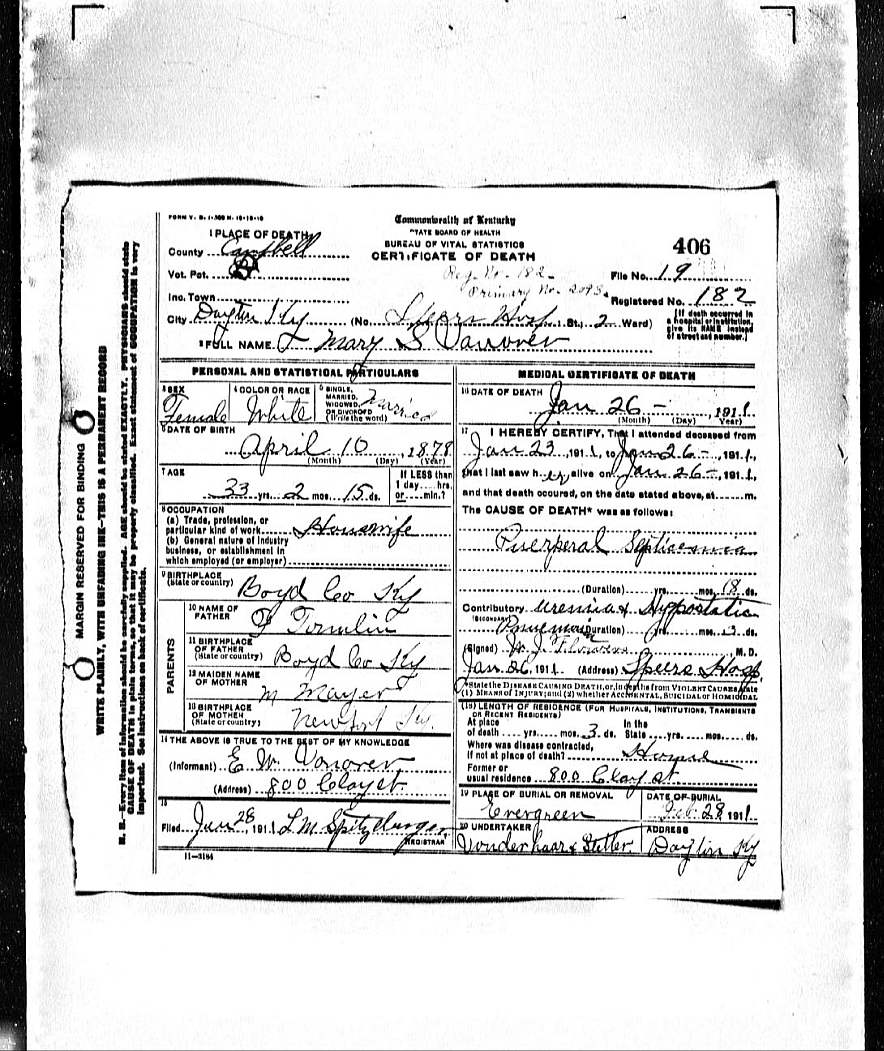 FORM V. S. 1-
Commonwealth of Kentucky
STATE BOARD OF HEALTH
BUREAU OF VITAL STATISTICS
CERTIFICATE OF DEATH
406
1 PLACE OF DEATH
County Campbell
Vot. Pct.
Inc. Town
City Dayton Ky (No. Speers Hosp St.; 2 Ward)
Reg. No. 182
Primary No. 2095
File No. 19
Registered No. 182
[If death occurred in a hospital or institution, give its NAME instead of street and number.]
2 FULL NAME Mary S Vanover
PERSONAL AND STATISTICAL PARTICULARS
3 SEX Female
4 COLOR OR RACE White
5 SINGLE, MARRIED, WIDOWED, OR DIVORCED (Write the word) Married
6 DATE OF BIRTH
April 10, 1878
(Month) (Day) (Year)
7 AGE
33 yrs. 2 mos. 15 ds.
If LESS than 1 day....hrs. or....min.?
8 OCCUPATION
(a) Trade, profession, or particular kind of work Housewife
(b) General nature of industry business, or establishment in which employed (or employer)
9 BIRTHPLACE (State or country) Boyd Co Ky
PARENTS
10 NAME OF FATHER Tomlin
11 BIRTHPLACE OF FATHER (State or country) Boyd Co Ky
12 MAIDEN NAME OF MOTHER M Mayer
13 BIRTHPLACE OF MOTHER (State or country) Newport Ky.
14 THE ABOVE IS TRUE TO THE BEST OF MY KNOWLEDGE
(Informant) E. W. Vanover
(Address) 800 Clay st.
15
Filed Jan 28, 1911 L M Spitzburger
REGISTRAR
11-3184
MEDICAL CERTIFICATE OF DEATH
16 DATE OF DEATH
Jan 26 - , 1911.
(Month) (Day) (Year)
17 I HEREBY CERTIFY, That I attended deceased from
Jan 23 1911, to Jan 26 - , 1911,
that I last saw her alive on Jan 26 - , 1911,
and that death occured, on the date stated above, at ....m.
The CAUSE OF DEATH* was as follows:
Puerperal Septicemia
(Duration) yrs. mos. 18 ds.
Contributory (SECONDARY) uremia & Hypostatic
Pneumonia (Duration) yrs. mos. 3 ds.
(Signed) W. J. M.D.
Jan 26, 1911 (Address) Speers Hosp.
*State the DISEASE CAUSING DEATH, or, in deaths from VIOLENT CAUSES, state
(1) MEANS OF INJURY; and (2) whether ACCIDENTAL, SUICIDAL or HOMICIDAL
(18) LENGTH OF RESIDENCE (FOR HOSPITALS, INSTITUTIONS, TRANSIENTS OR RECENT RESIDENTS)
At place of death yrs. mos. 3 ds. In the State yrs. mos. ds.
Where was disease contracted, if not at place of death? Home
Former or usual residence 800 Clay st.
19 PLACE OF BURIAL OR REMOVAL
Evergreen
DATE OF BURIAL
Feb. 28, 1911.
20 UNDERTAKER
Vonderhaar & Stetter.
ADDRESS
Dayton Ky
MARGIN RESERVED FOR BINDING
WRITE PLAINLY, WITH UNFADING INK—THIS IS A PERMANENT RECORD
N. B.—Every item of information should be carefully supplied. AGE should be stated EXACTLY. PHYSICIANS should state
CAUSE OF DEATH in plain terms, so that it may be properly classified. Exact statement of OCCUPATION is very
important. See instructions on back of certificate.